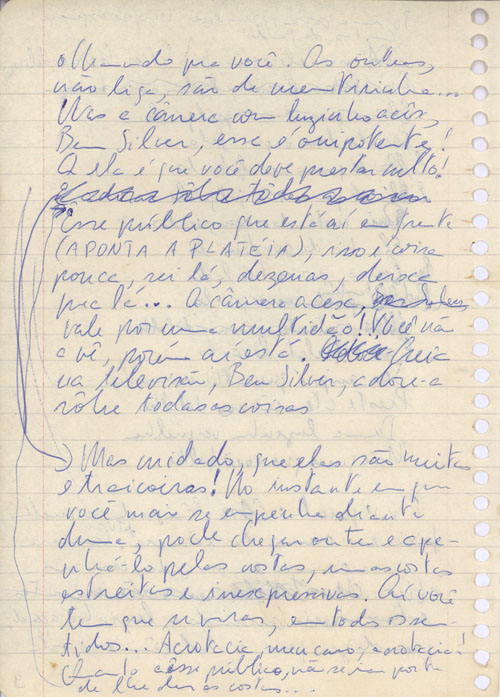 olhando pra você. As outras,
não liga, são de mentirinha...
Mas a câmera com luzinha acêsa,
Ben Silver, essa é onipotente!
A ela é que você deve prestar culto!
Êsse público que está aí em frente
(APONTA A PLATEIA), isso é coisa
pouca, sei lá, dezenas, deixa
pra lá... A câmera acesa,
vale por uma multidão! Você não
a vê, porém aí está. Creia
na televisão, Ben Silver, adore-a
sôbre todas as coisas
Mas cuidado, que elas são muitas
e traiçoeiras! No instante em que
você mais se empenha diante
duma, pode chegar outra e apa-
nhá-lo pelas costas, umas costas
estreitas e inexpressivas. Aí você
tem que se virar, em todos os sen-
tidos... Acrobacia, meu caro, acrobacia!
Quanto a êsse público, não se importe
de lhe dar as costas...